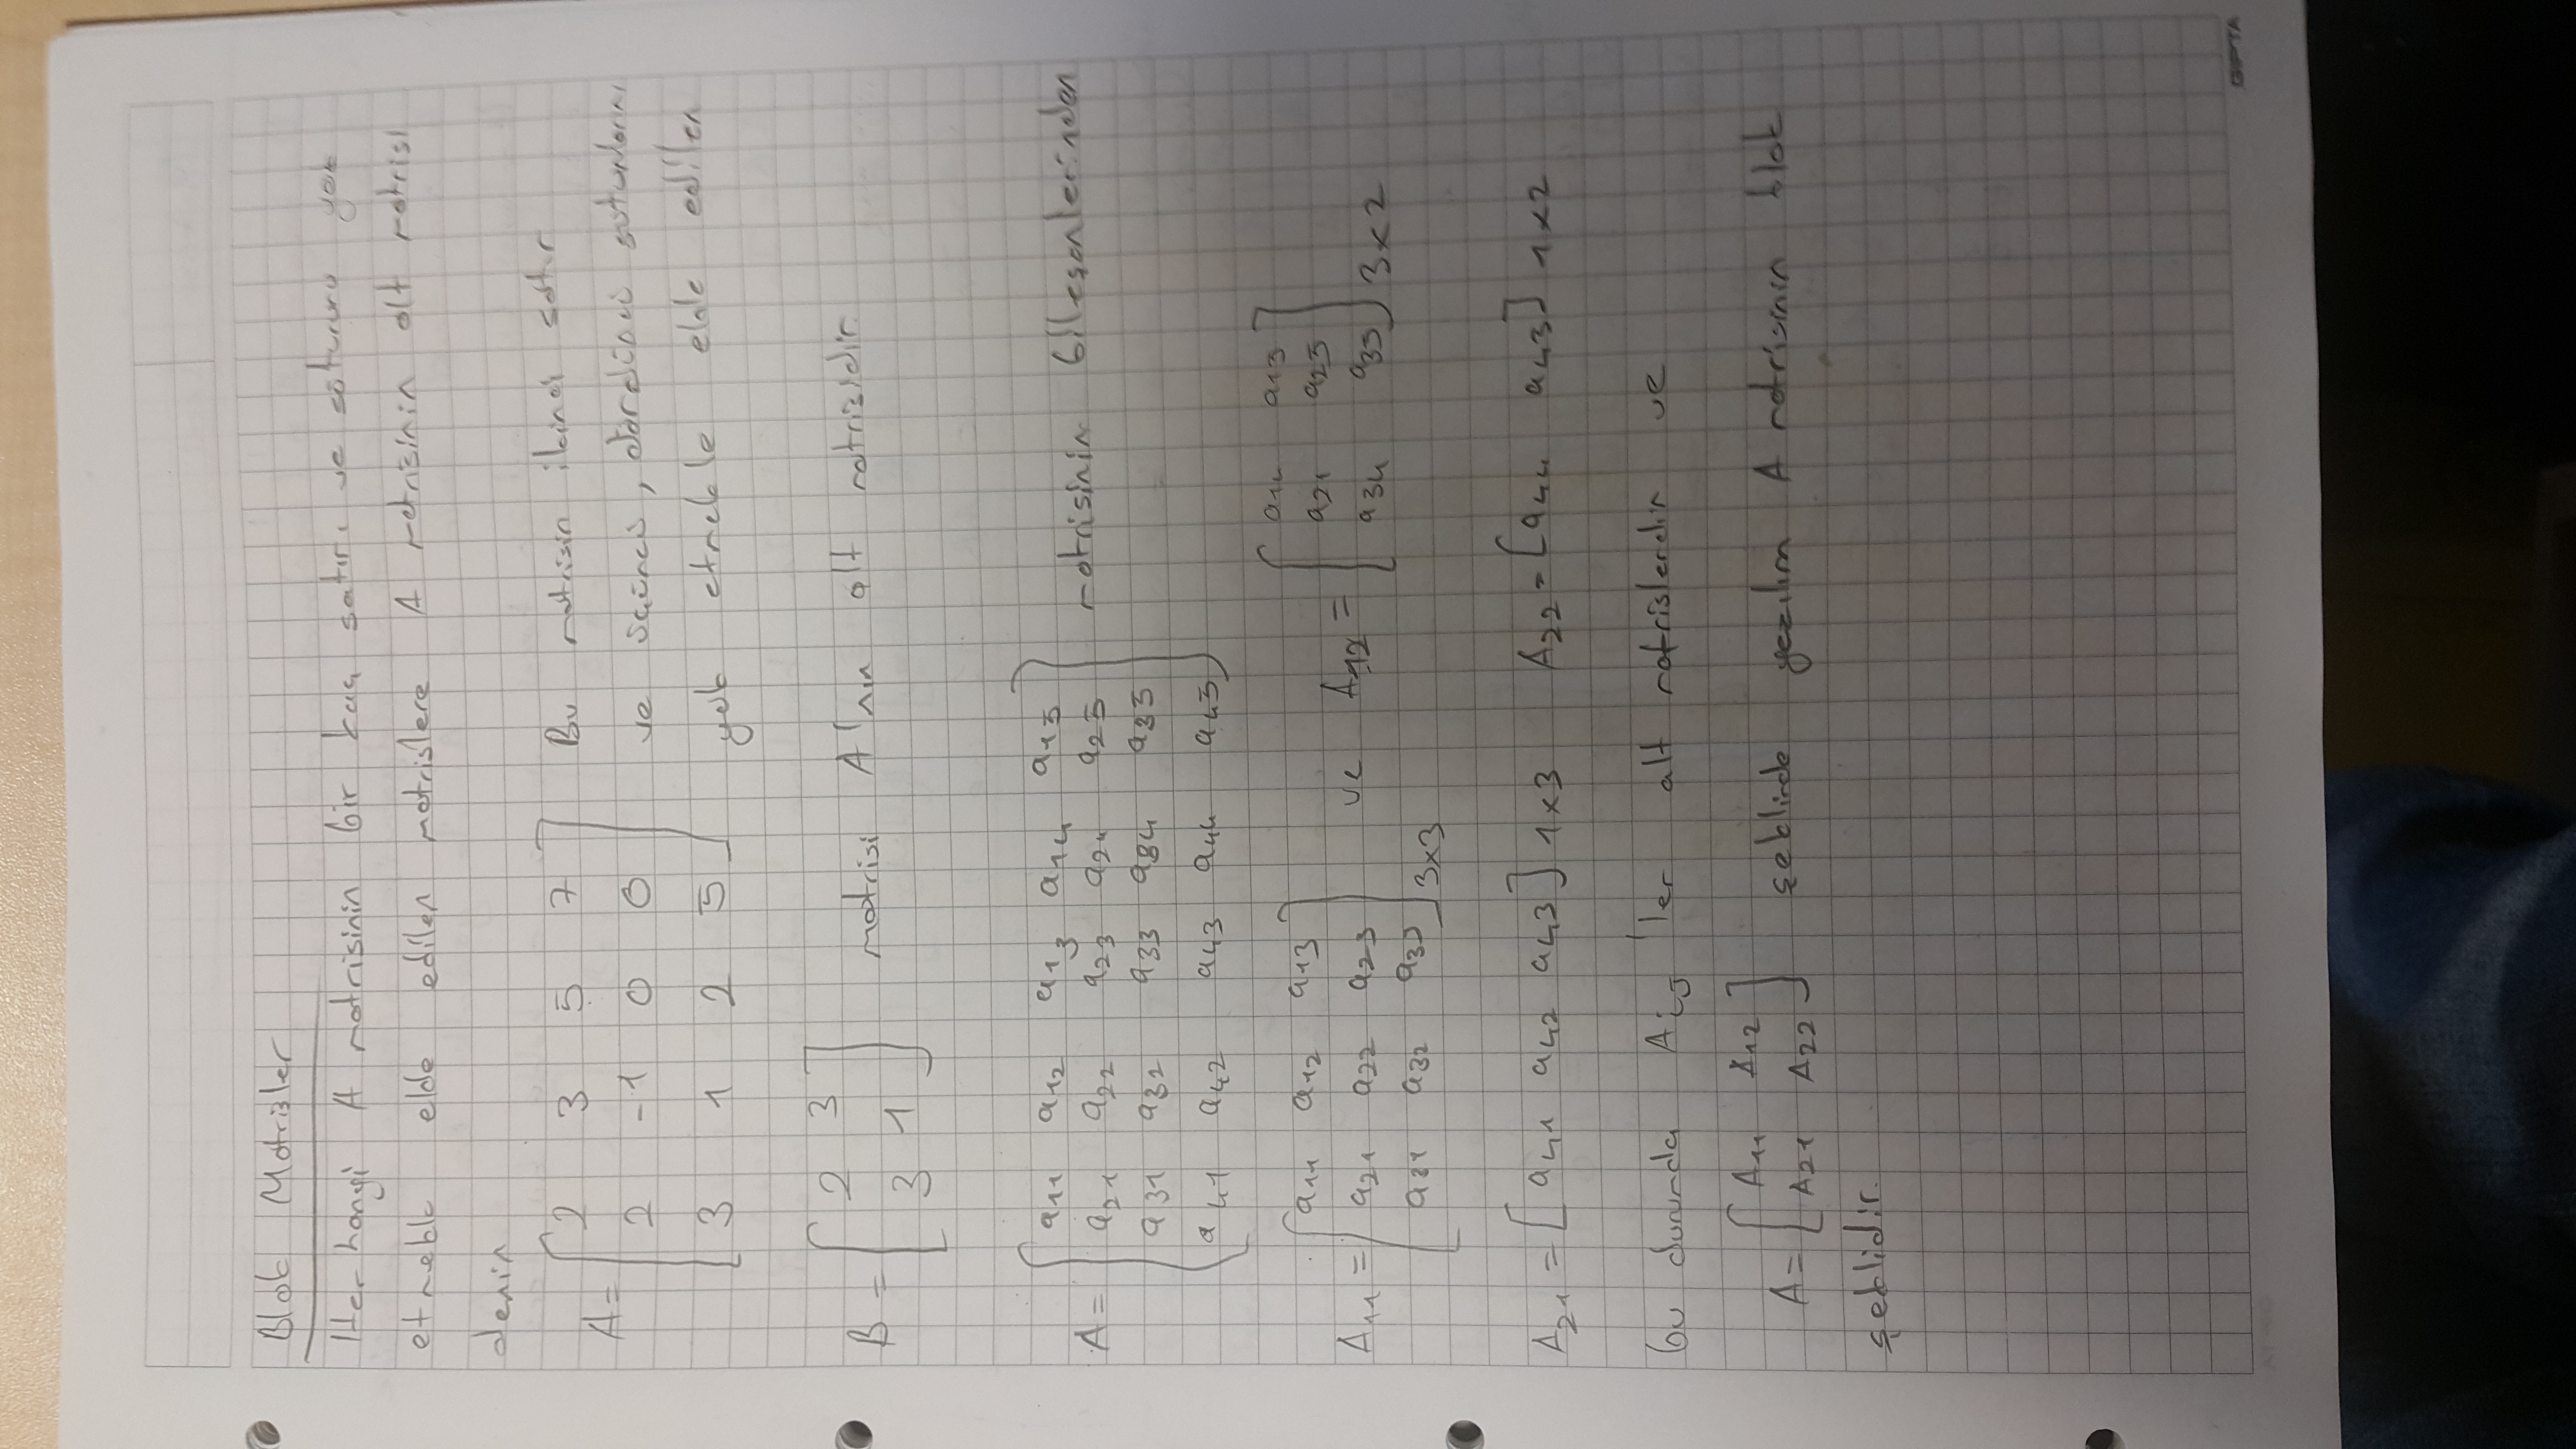 Blok Matrisler
Her hangi A matrisinin bir kaç satırı ve sütununu yok
etmekle elde edilen matrislere A matrisinin alt matrisi
denir
A = [ 2 3 5 7 Bu matrisin ikinci satır
2 -1 0 0 ve üçüncü, dördüncü sütunlarını
3 1 2 5 ] yok etmekle elde edilen
B = [ 2 3
3 1 ] matrisi A'nın alt matrisidir.
A = [ a11 a12 a13 a14 a15
a21 a22 a23 a24 a25 matrisinin bileşenlerinden
a31 a32 a33 a34 a35
a41 a42 a43 a44 a45 ]
A11 = [ a11 a12 a13
a21 a22 a23
a31 a32 a33 ] 3x3
ve A12 = [ a14 a15
a24 a25
a34 a35 ] 3x2
A21 = [ a41 a42 a43 ] 1x3 A22 = [ a44 a45 ] 1x2
bu durumda Aij 'ler alt matrislerdir ve
A = [ A11 A12
A21 A22 ] şeklinde yazılım A matrisinin blok
şeklidir.
GIPTA